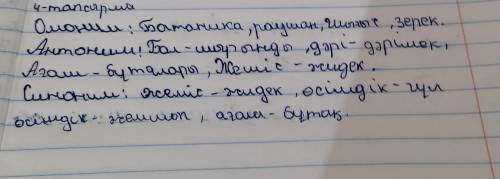 4-тапсырма
Омоним: Ботаника, раушан, жыныс, зерек.
Антоним: Бал-шырынды, дәрі-дәрілік,
Ағаш-бұталары, Жеміс-жидек.
Синоним: жеміс-жидек, өсімдік-гүл
өсімдік-жемшөп, ағаш-бұтақ.